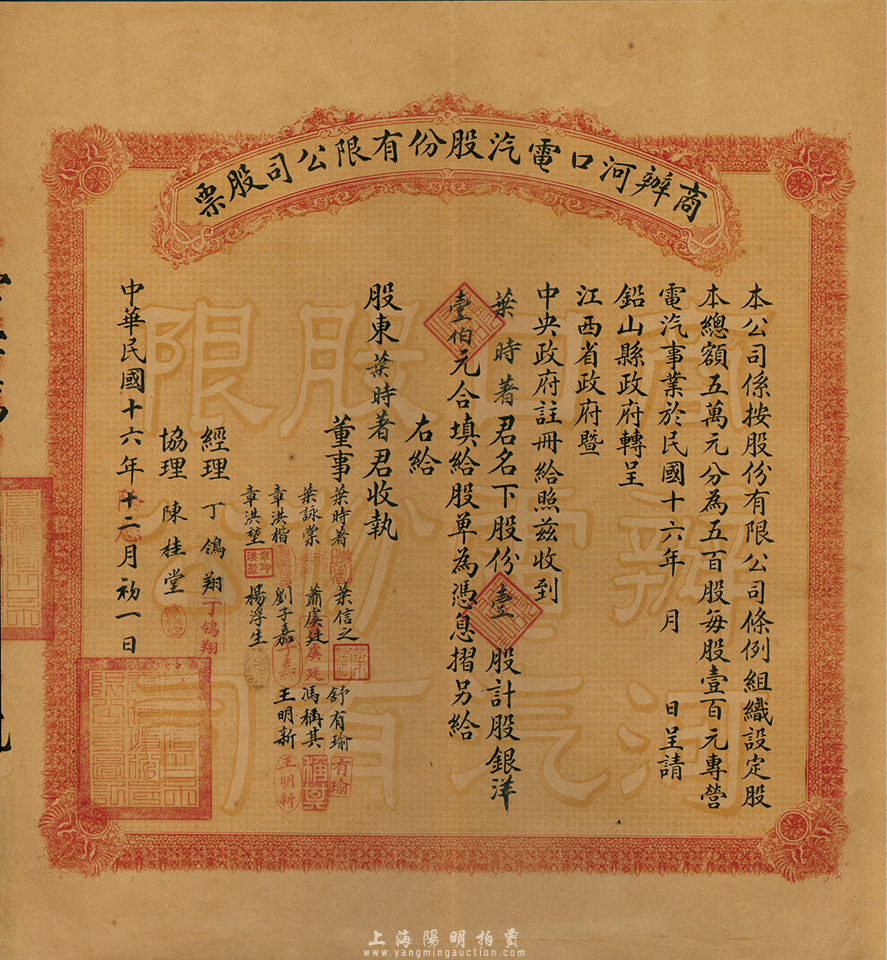 商辦河口電汽股份有限公司股票
本公司係按股份有限公司條例組織設定股
本總額五萬元分為五百股每股壹百元專營
電汽事業於民國十六年 月 日呈請
鉛山縣政府轉呈
江西省政府暨
中央政府註冊給照茲收到
葉時著君名下股份壹股計股銀洋
壹伯元合填給股單為憑息摺另給
右給
股東葉時著君收執
董事 葉時著 葉信之 舒有瑜
葉詠棠 蕭虞廷 馮稱其
章洪楷 劉子嘉 王明新
章洪塹 楊浮生
經理 丁鴿翔
協理 陳桂堂
中華民國十六年十二月初一日
商辦河口電汽股份有限公司
丁鴿翔
有瑜
稱其
王明新
上海陽明拍賣
www.yangmingauction.com